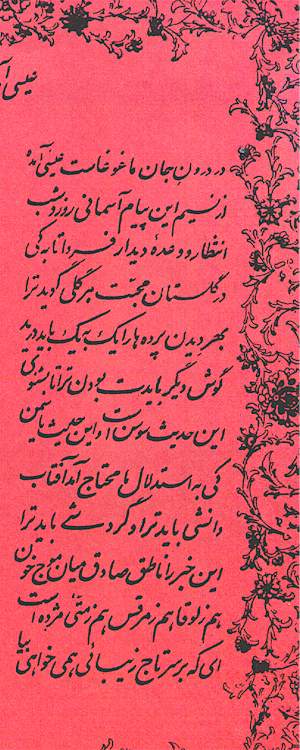 عیسی
در درون جان ما غوغاست عیسی آمده
از نسیم این پیام آسمانی روز و شب
انتظار و وعدهٔ دیدار فردا تا به کی
در گلستان محبت هر گلی گوید ترا
بهر دیدن پرده ها را یک به یک باید درید
گوش دیگر بایدت بودن ترا تا بشنوی
این حدیث سوسن است و این حدیث یاسمین
کی به استدلال ها محتاج آمد آفتاب
دانشی باید ترا و گردشی باید ترا
این خبر را ناطق صادق میان موج خون
هم ز لوقا هم ز مرقس هم ز متی مژده است
ای که بر سر تاج زیبائی همی خواهی بیا